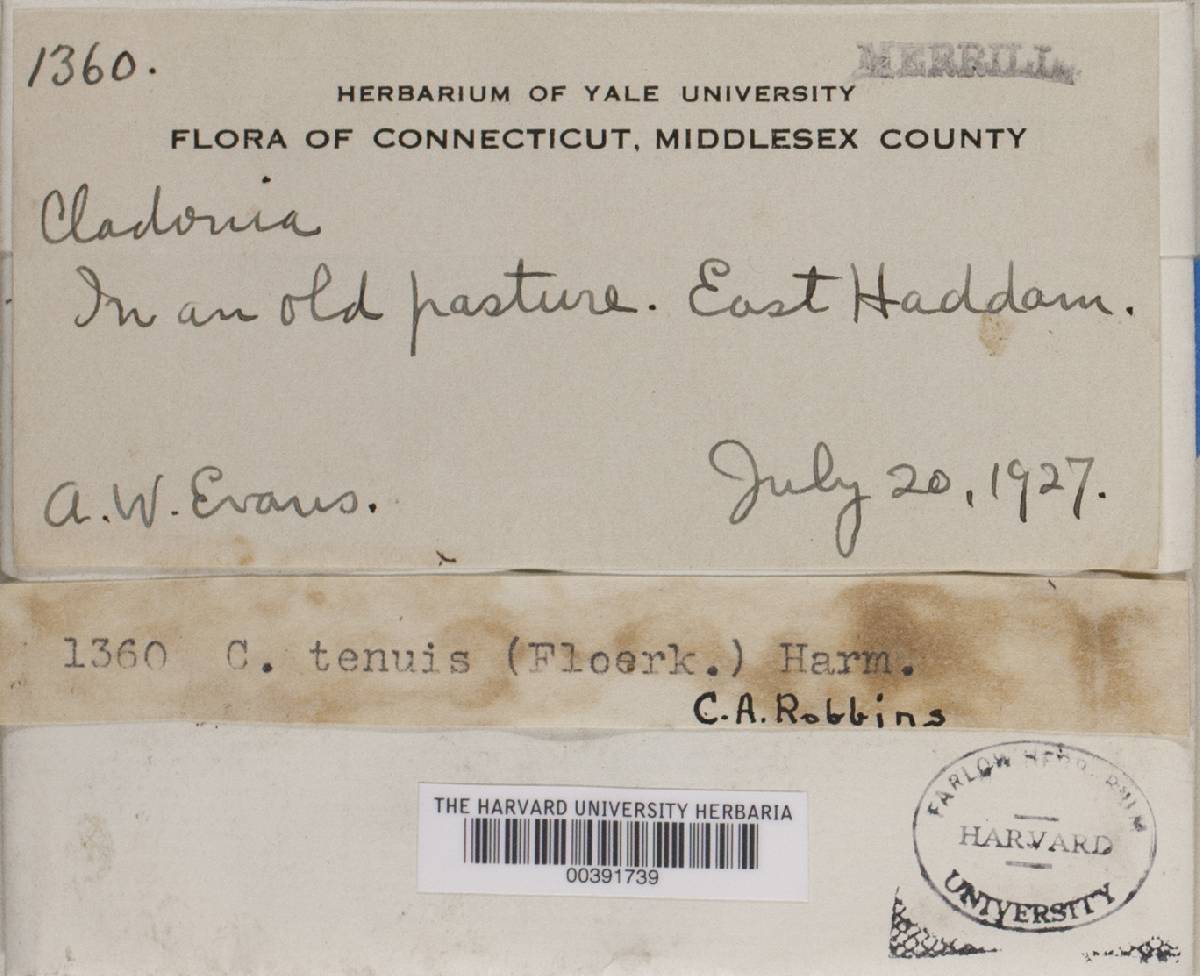 1360.
MERRILL
HERBARIUM OF YALE UNIVERSITY
FLORA OF CONNECTICUT, MIDDLESEX COUNTY
Cladonia
In an old pasture. East Haddam.
A. W. Evans. July 20, 1927.
1360 C. tenuis (Floerk.) Harm.
C. A. Robbins
THE HARVARD UNIVERSITY HERBARIA
00391739
FARLOW HERBARIUM
HARVARD
UNIVERSITY